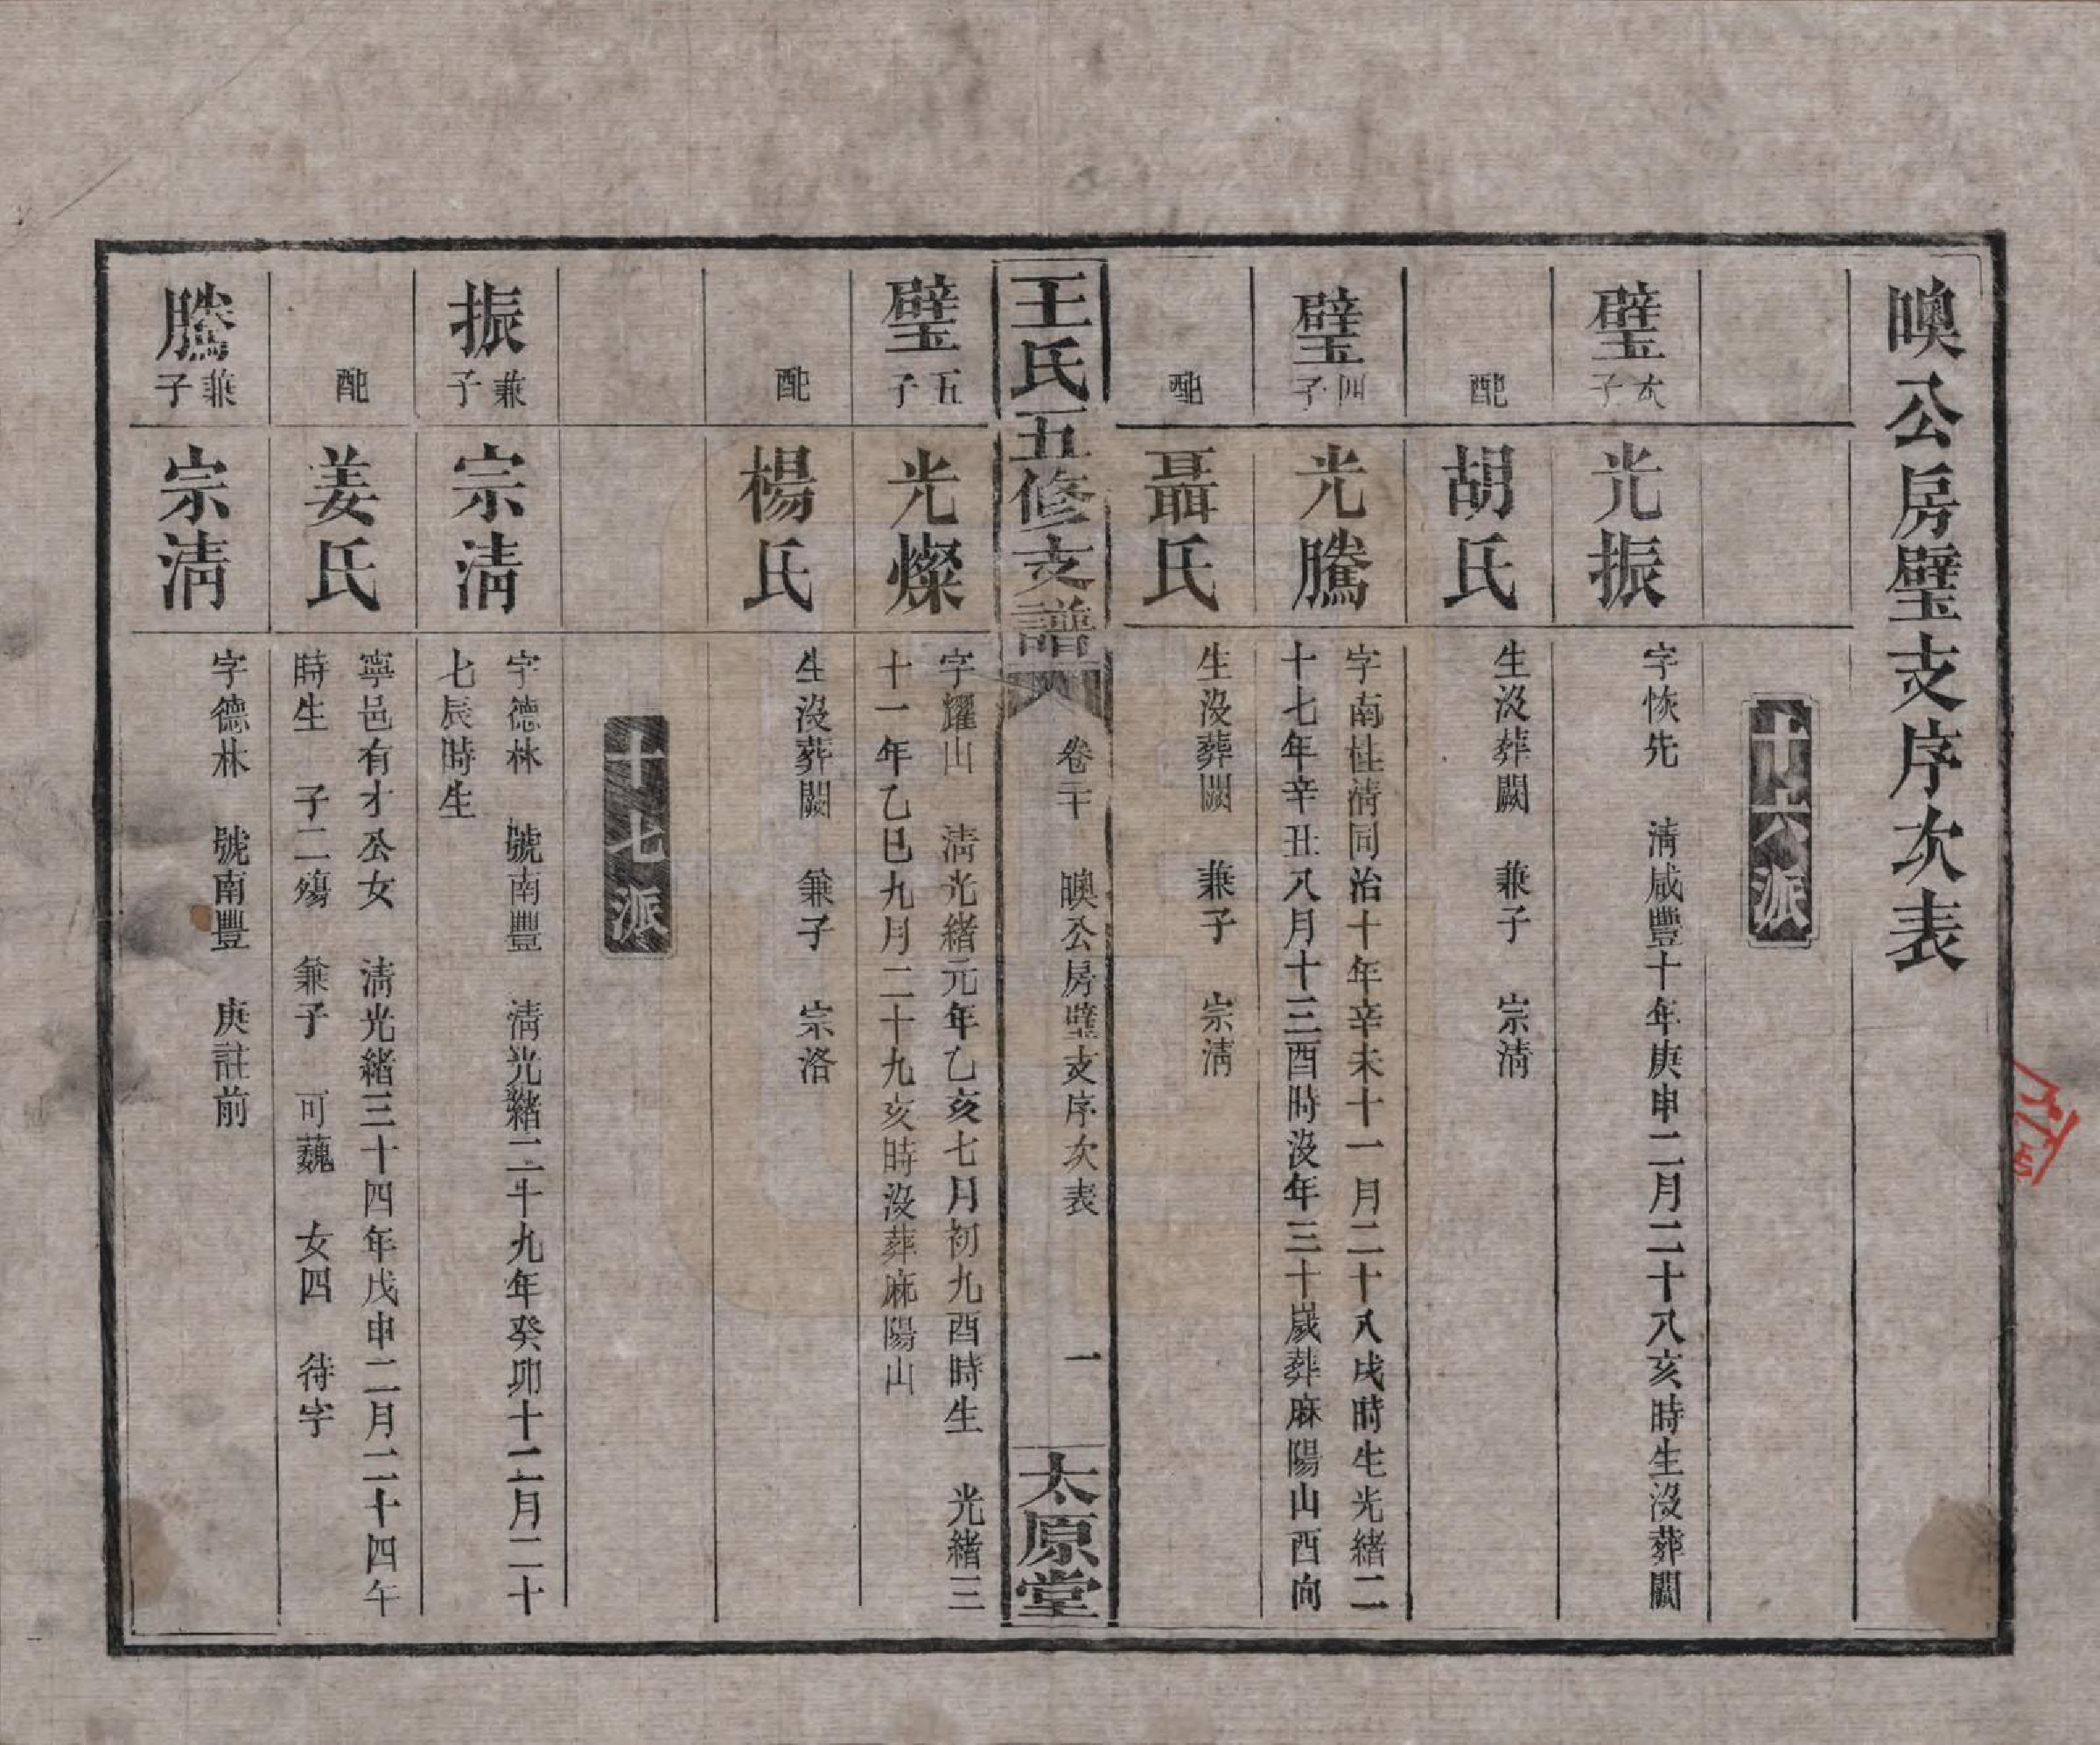 㬂公房璧支序次表
十六派
璧次子
光振
字恢先　淸咸豐十年庚申二月二十八亥時生沒葬闕
配
胡氏
生沒葬闕　兼子　宗淸
璧四子
光騰
字南桂淸同治十年辛未十一月二十八戌時生光緒二
十七年辛丑八月十三酉時沒年三十歲葬麻陽山西向
配
聶氏
生沒葬闕　兼子　宗淸
王氏五修支譜
卷六　㬂公房璧支序次表　一
太原堂
璧五子
光燦
字耀山　淸光緒元年乙亥七月初九酉時生　光緒三
十一年乙巳九月二十九亥時沒葬麻陽山
配
楊氏
生沒葬闕　兼子　宗洛
十七派
振兼子
宗淸
字德林　號南豐　淸光緒二十九年癸卯十二月二十
七辰時生
配
姜氏
寧邑有才公女　淸光緒三十四年戊申二月二十四午
時生　子二殤　兼子　可巍　女四　待字
騰兼子
宗淸
字德林　號南豐　庚註前